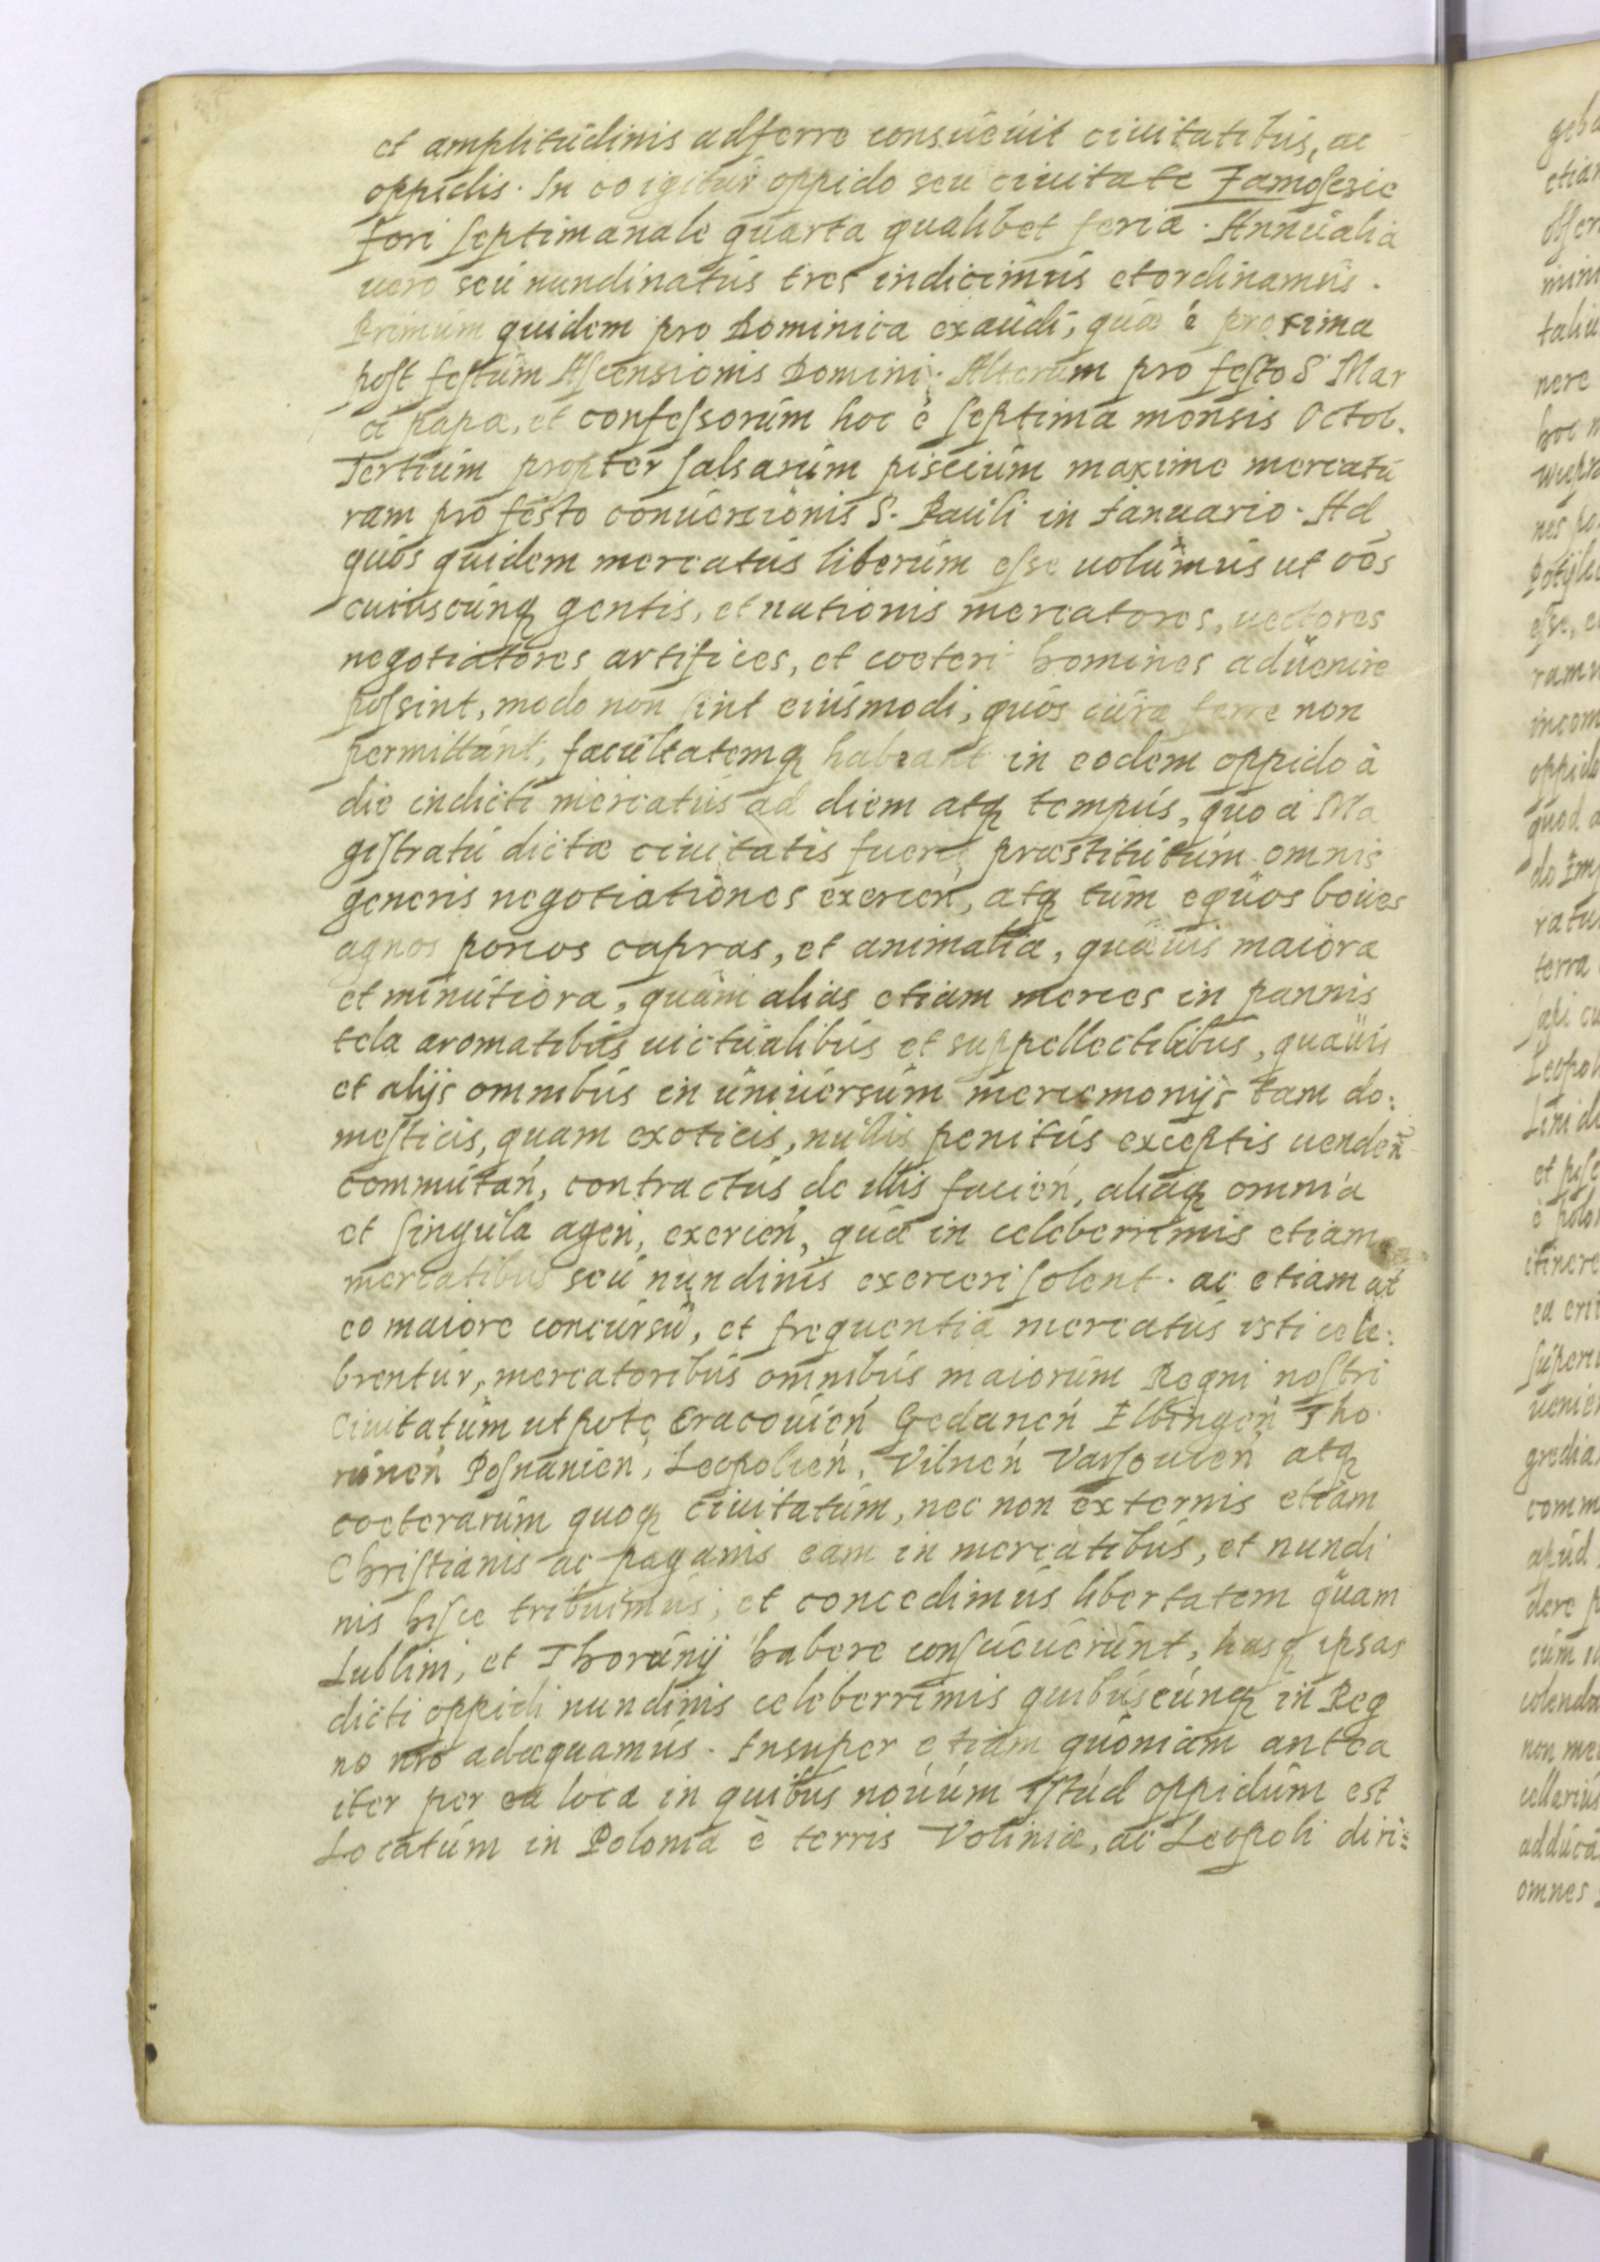 et amplitudinis adferre consueuit ciuitatibus, ac
oppidis. In eo igitur oppido seu ciuitate Zamoscie
fori septimanale quarta qualibet feria. Annualia
uero seu nundinatus tres indicimus et ordinamus.
Primum quidem pro Dominica exaudi, quæ é proxima
post festum Ascensionis Domini. Alterum pro festo S Mar
ci papæ, et confessorum hoc é septima mensis Octob.
Tertium propter salsarum piscium maxime mercatu
ram pro festo conuersionis S. Pauli in Januario. Ad
quos quidem mercatus liberum esse uolumus ut oēs
cuiuscunq gentis, et nationis mercatores, uectores
negotiatores artifices, et coeteri homines aduenire
possint, modo non sint eiusmodi, quos iura ferre non
permittant, facultatemq habeant in eodem oppido à
die indicti mercatus ad diem atq tempus, quo à Ma
gistratu dictæ ciuitatis fuerit præstitutum omnis
generis negotiationes exercen, atq tum equos boues
agnos porcos capras, et animalia, quæuis maiora
et minutiora, quam alias etiam merces in pannis
tela aromatibus uictualibus et suppellectilibus, quæuis
et alijs omnibus in uniuersum mercemonijs tam do:
mesticis, quam exoticis, nullis penitus exceptis uenden
commutan, contractus de illis facien, aliaq omnia
et singula agen, exercen, quæ in celeberrimis etiam
mercatibus seu nundinis exerceri solent. ac etiam ut
eo maiore concursu, et frequentia mercatus isti cele:
brentur, mercatoribus omnibus maiorum Regni nostri
Ciuitatum utpote Cracouien Gedanen Elbingen Tho
runen Posnanien, Leopolien, Vilnen Varsouien atq
coeterarum quoq ciuitatum, nec non externis etiam
Christianis ac paganis eam in mercatibus, et nundi
nis hisce tribuimus, et concedimus libertatem quam
Lublini, et Thorunij habere consueuerunt, hasq ipsas
dicti oppidi nundinis celeberrimis quibuscunq in Reg
no nro adæquamus. Insuper etiam quoniam antea
iter per ea loca in quibus nouum istud oppidum est
Locatum in Polonia è terris Voliniæ, ac Leopoli diri: